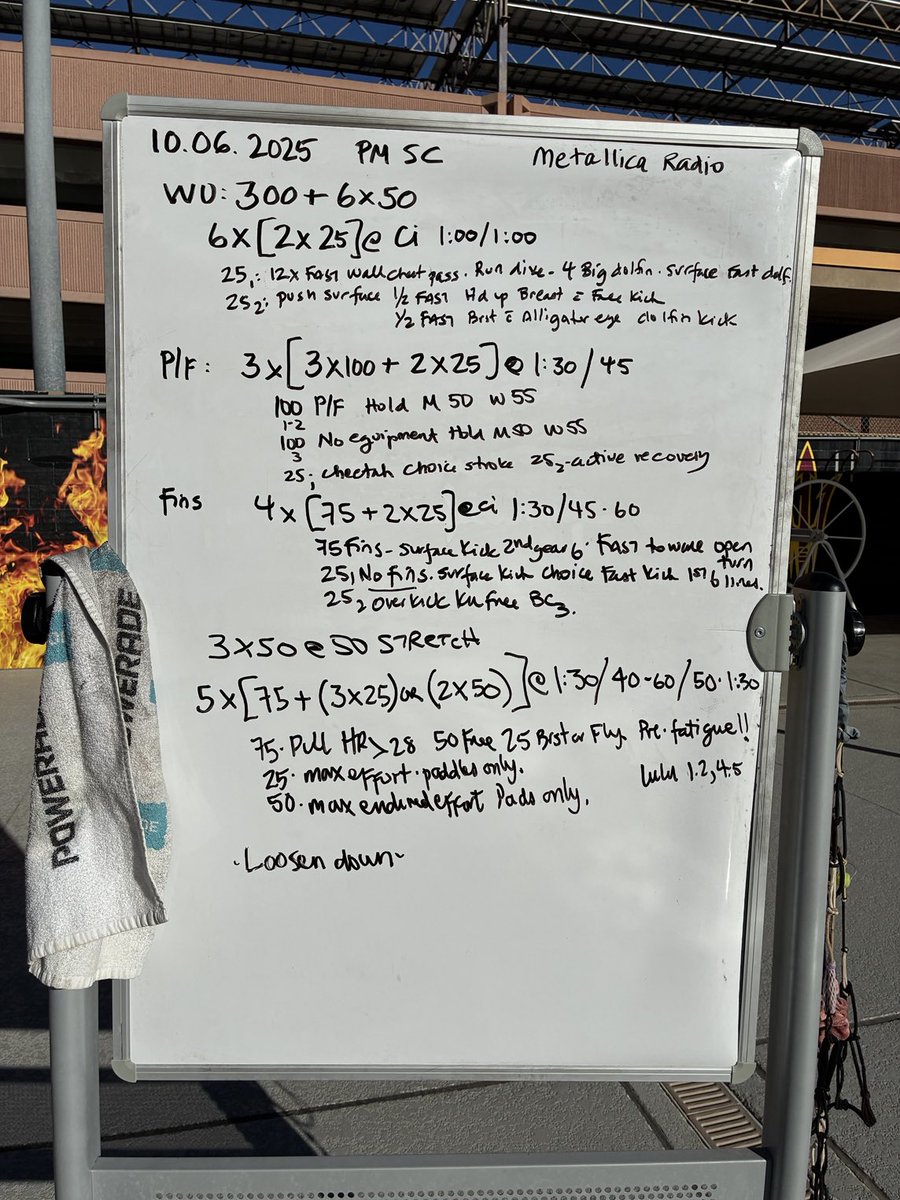 10.06.2025 PM SC Metallica Radio
WU: 300 + 6x50
6x[2x25]@ Ci 1:00/1:00
25₁: 12x Fast Wall chest pass. Run dive - 4 Big dolfin. Surface Fast dolf.
25₂: push surface 1/2 FAST Hd up Breast c̄ Free Kick
1/2 FAST Brst c̄ Alligator eye dolfin kick
P/F: 3x[3x100 + 2x25]@ 1:30/45
100 P/F Hold M 50 W 55
1-2
100 No equipment Hold M50 W55
3
25₁ cheetah choice stroke 25₂-active recovery
Fins 4x[75+2x25]@ci 1:30/45.60
75 Fins - surface kick 2nd gear 6. Fast to wall open turn
25₁ No Fins. surface kick choice Fast Kick 1st 6 lines.
25₂ overkick Free BC3.
3x50 @ 50 STRETCH
5x[75+(3x25)or(2x50)]@ 1:30/40-60/50.1:30
75. Pull HR>28 50 Free 25 Brst or Fly. Pre-fatigue!!
25. max effort. paddles only. 1.2,4.5
50. max effort Pads only.
.Loosen down.
POWERADE
POWERADE